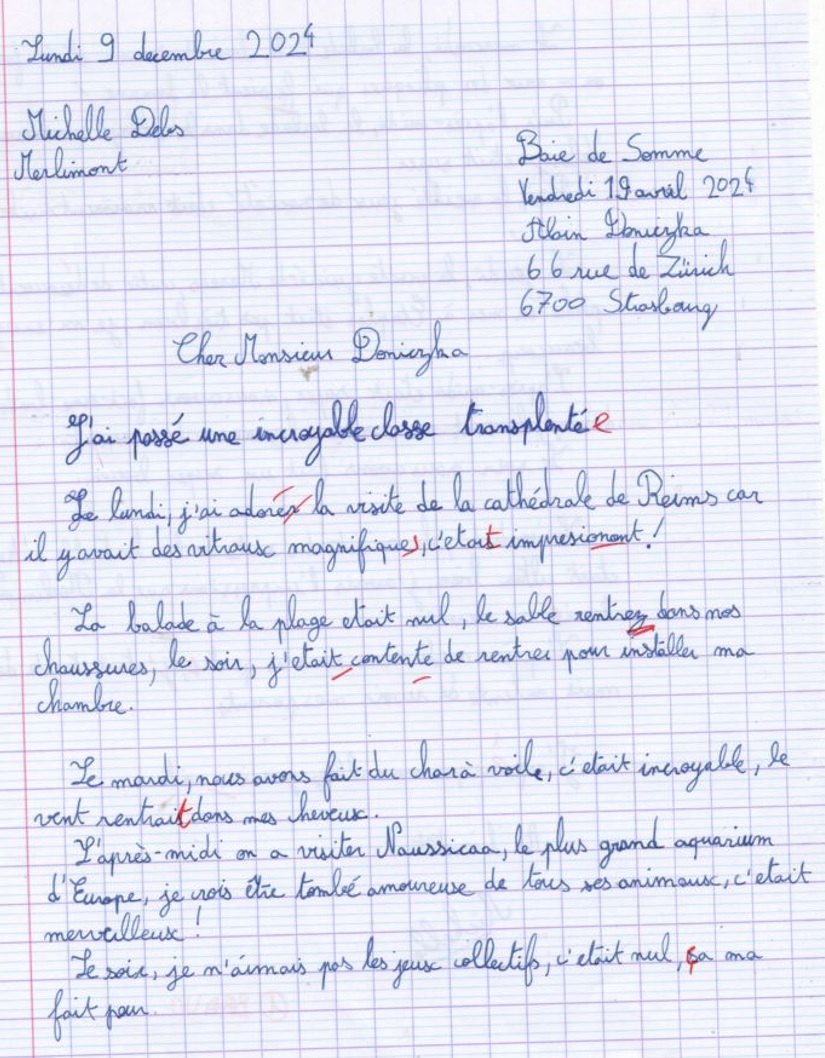 Lundi 9 decembre 2024
Michelle Delos
Merlimont
Baie de Somme
Vendredi 19 avril 2024
Alain
66 rue de Zürich
6700 Strasbourg
Cher Monsieur Doniczka
J'ai passé une incroyable classe transplentée
Le lundi, j'ai adorer la visite de la cathédrale de Reims car
il y avait des vitraux magnifiques, c'etait impresionant !
La balade à la plage etait nul, le sable rentrez dans nos
chaussures, le soir, j'etait contente de rentrer pour installer ma
chambre.
Le mardi, nous avons fait du char à voile, c'était incroyable, le
vent rentrait dans mes cheveux.
L'après-midi on a visiter Naussicaa, le plus grand aquarium
d'Europe, je crois être tombé amoureuse de tous ses animaux, c'etait
merveilleux !
Le soir, je n'aimais pas les jeux collectifs, c'était nul, ça ma
fait peur.